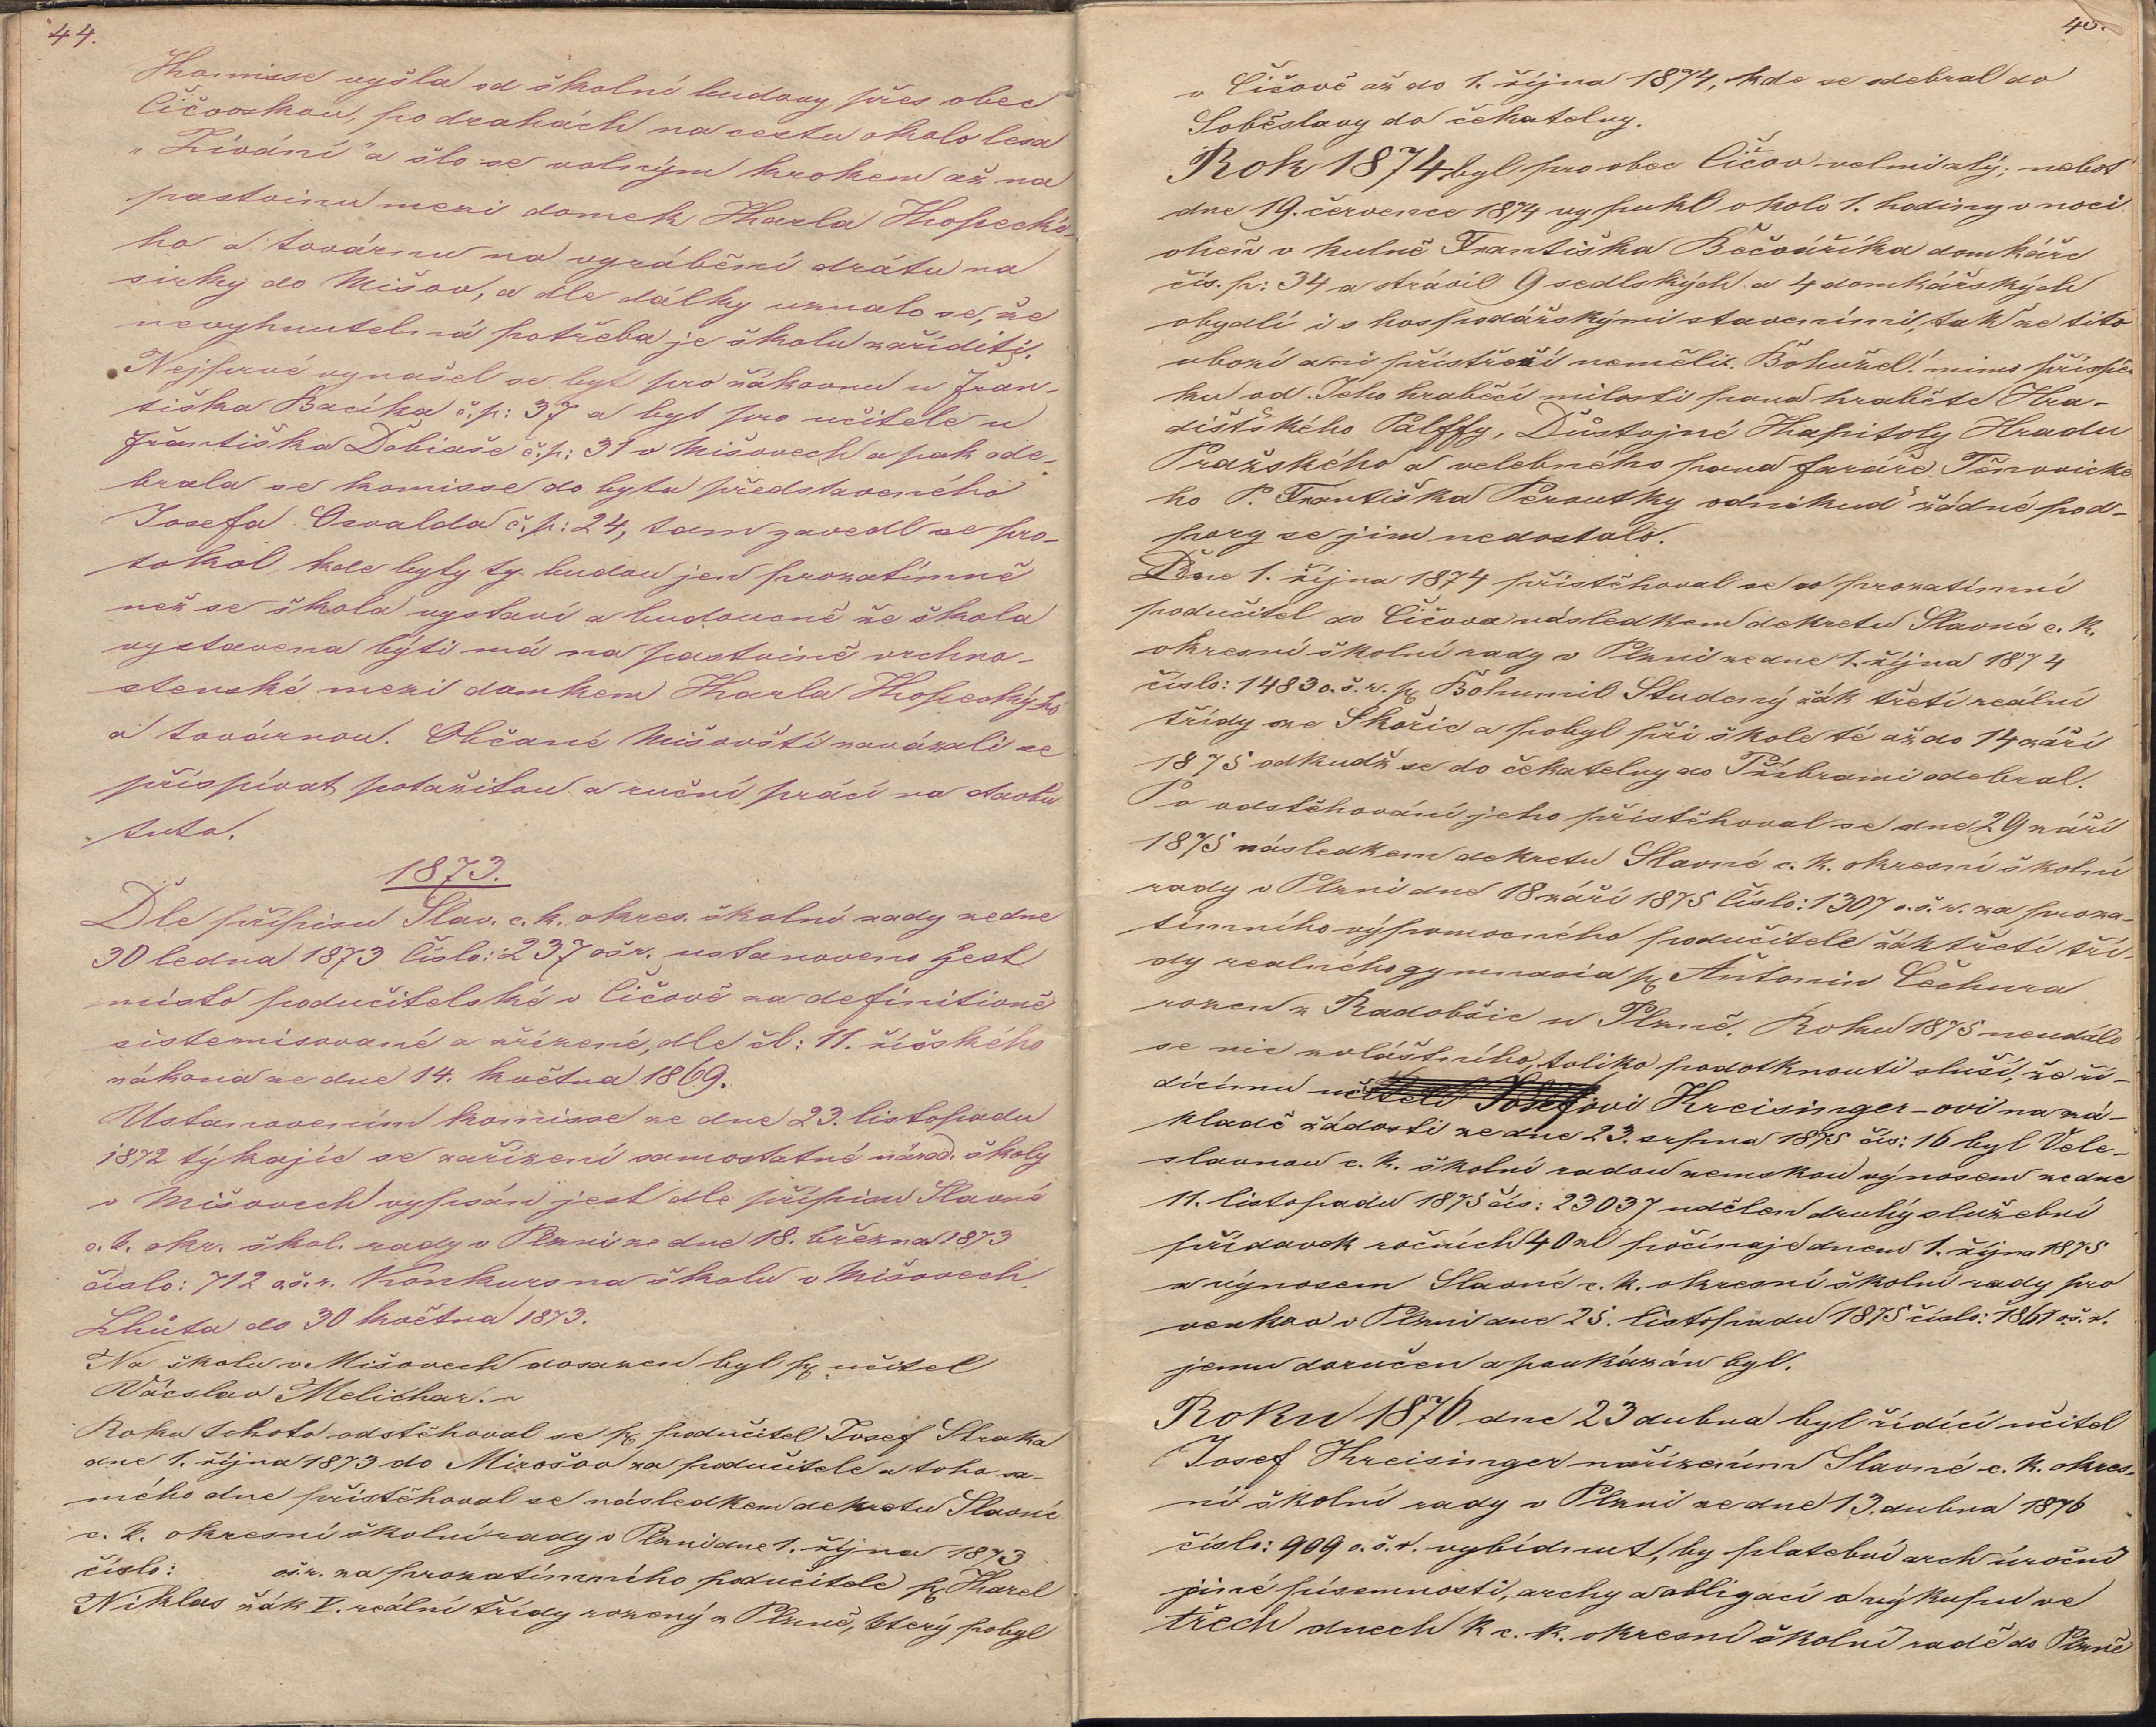 44.
Komisse vyšla od školní budovy přes obec
Čičovskou, po drahách na cestu okolo lesa
„Zívání" a šlo se volným krokem až na
pastvinu mezi domek Karla Kopecké-
ho a továrnu na vyrábění drátu na
sirky do Mišov, a dle dálky uznalo se, že
nevyhnutelná potřeba je školu zaříditi.
Nejprvé vynašel se byt pro žákovnu u Fran-
tiška Bacíka č.p: 37 a byt pro učitele u
Františka Dobiaše č.p: 31 v Mišovech a pak ode-
brala se komisse do bytu představeného
Josefa Osvalda č.p: 24, tam zavedl se pro-
tokol, kde byty ty budou jen prozatímně
než se škola vystaví a budoucně že škola
vystavena býti má na pastvině vrchno-
stenské mezi domkem Karla Kopeckýho
a továrnou. Občané Mišovští zavázali se
přispívat potažitou a ruční prací na stavbu
tuto.
1873.
Dle přípisu Slav. c. k. okres. školní rady ze dne
30 ledna 1873 Číslo: 237 ošr. ustanoveno jest
místo podučitelské v Čičově za definitivně
sistemisované a zřízené, dle čl: 11. říšského
zákona ze dne 14. května 1869.
Ustanovením komisse ze dne 23. listopadu
1872 týkajíc se zařízení samostatné národ. školy
v Mišovech vypsán jest dle přípisu Slavné
c. k. okr. škol. rady v Plzni ze dne 18. března 1873
číslo: 712 oš. r. Konkurs na školu v Mišovech.
Lhůta do 30 května 1873.
Na školu v Mišovech dosazen byl p. učitel
Václav Melichar.
Roku tohoto odstěhoval se p. podučitel Josef Straka
dne 1. října 1873 do Mirošov za podučitele a toho sa-
mého dne přistěhoval se následkem dekretu Slavné
c. k. okresní školní rady v Plzni dne 1. října 1873
číslo: oš.r. za prozatímního podučitele p. Karel
Niklas žák V. reální třídy rozený z Plzně, který pobyl
45.
v Čičově až do 1. října 1874, kde se odebral do
Soběslavy do čekatelny.
Rok 1874 byl pro obec Čičov velmi zlý; neboť
dne 19. července 1874 vypukl okolo 1. hodiny v noci
oheň v kulně Františka Bečváříka domkáře
čís. p: 34 a strávil 9 sedlských a 4 domkářských
obydlí i s hospodářskými staveními, tak že tito
ubozí ani přístřeší neměli. Bohužel! mimo příspěv-
ku od Jeho hraběcí milosti pana hraběte Hra-
dišťského Palffy, Důstojné Kapitoly Hradu
Pražského a velebného pana faráře Těnovické-
ho P. Františka Peroutky odnikud žádné pod-
pory se jim nedostalo.
Dne 1. října 1874 přistěhoval se co prozatímní
podučitel do Čičova následkem dekretu Slavné c. k.
okresní školní rady v Plzni ze dne 1. října 1874
číslo: 1483 o. š. r. p. Bohumil Studený žák třetí reální
třídy ze Skořic a pobyl při škole té až do 14 září
1875 odkudž se do čekatelny do Příbrami odebral.
Po odstěhování jeho přistěhoval se dne 29 září
1875 následkem dekretu Slavné c. k. okresní školní
rady v Plzni dne 18 září 1875 Číslo: 1307 o.š.r. za proza-
tímního výpomocného podučitele žák třetí tří-
dy realného gymnasia p. Antonin Čechura
rozen z Radobšic u Plzně. Roku 1875 neudálo
se nic zvláštního, toliko podotknouti sluší, že ří-
dícímu učiteli Josefovi Kreisinger-ovi na zá-
kladě žádosti ze dne 23. srpna 1875 čís: 16 byl Vele-
slavnou c. k. školní radou zemskou výnosem ze dne
11. listopadu 1875 čís: 23037 udělen druhý služební
přídavek ročních 40 zl počínaje dnem 1. října 1875
a výnosem Slavné c. k. okresní školní rady pro
venkov v Plzni dne 25. listopadu 1875 číslo: 1861 o.š.r.
jemu doručen a poukázán byl.
Roku 1876 dne 23 dubna byl řídící učitel
Josef Kreisinger nařízením Slavné c. k. okres-
ní školní rady v Plzni ze dne 13. dubna 1876
číslo: 909 o.š.r. vybídnut, by platební arch úroční
jiné písemnosti, archy a obligací o výkupu ve
třech dnech k c. k. okresní školní radě do Plzně